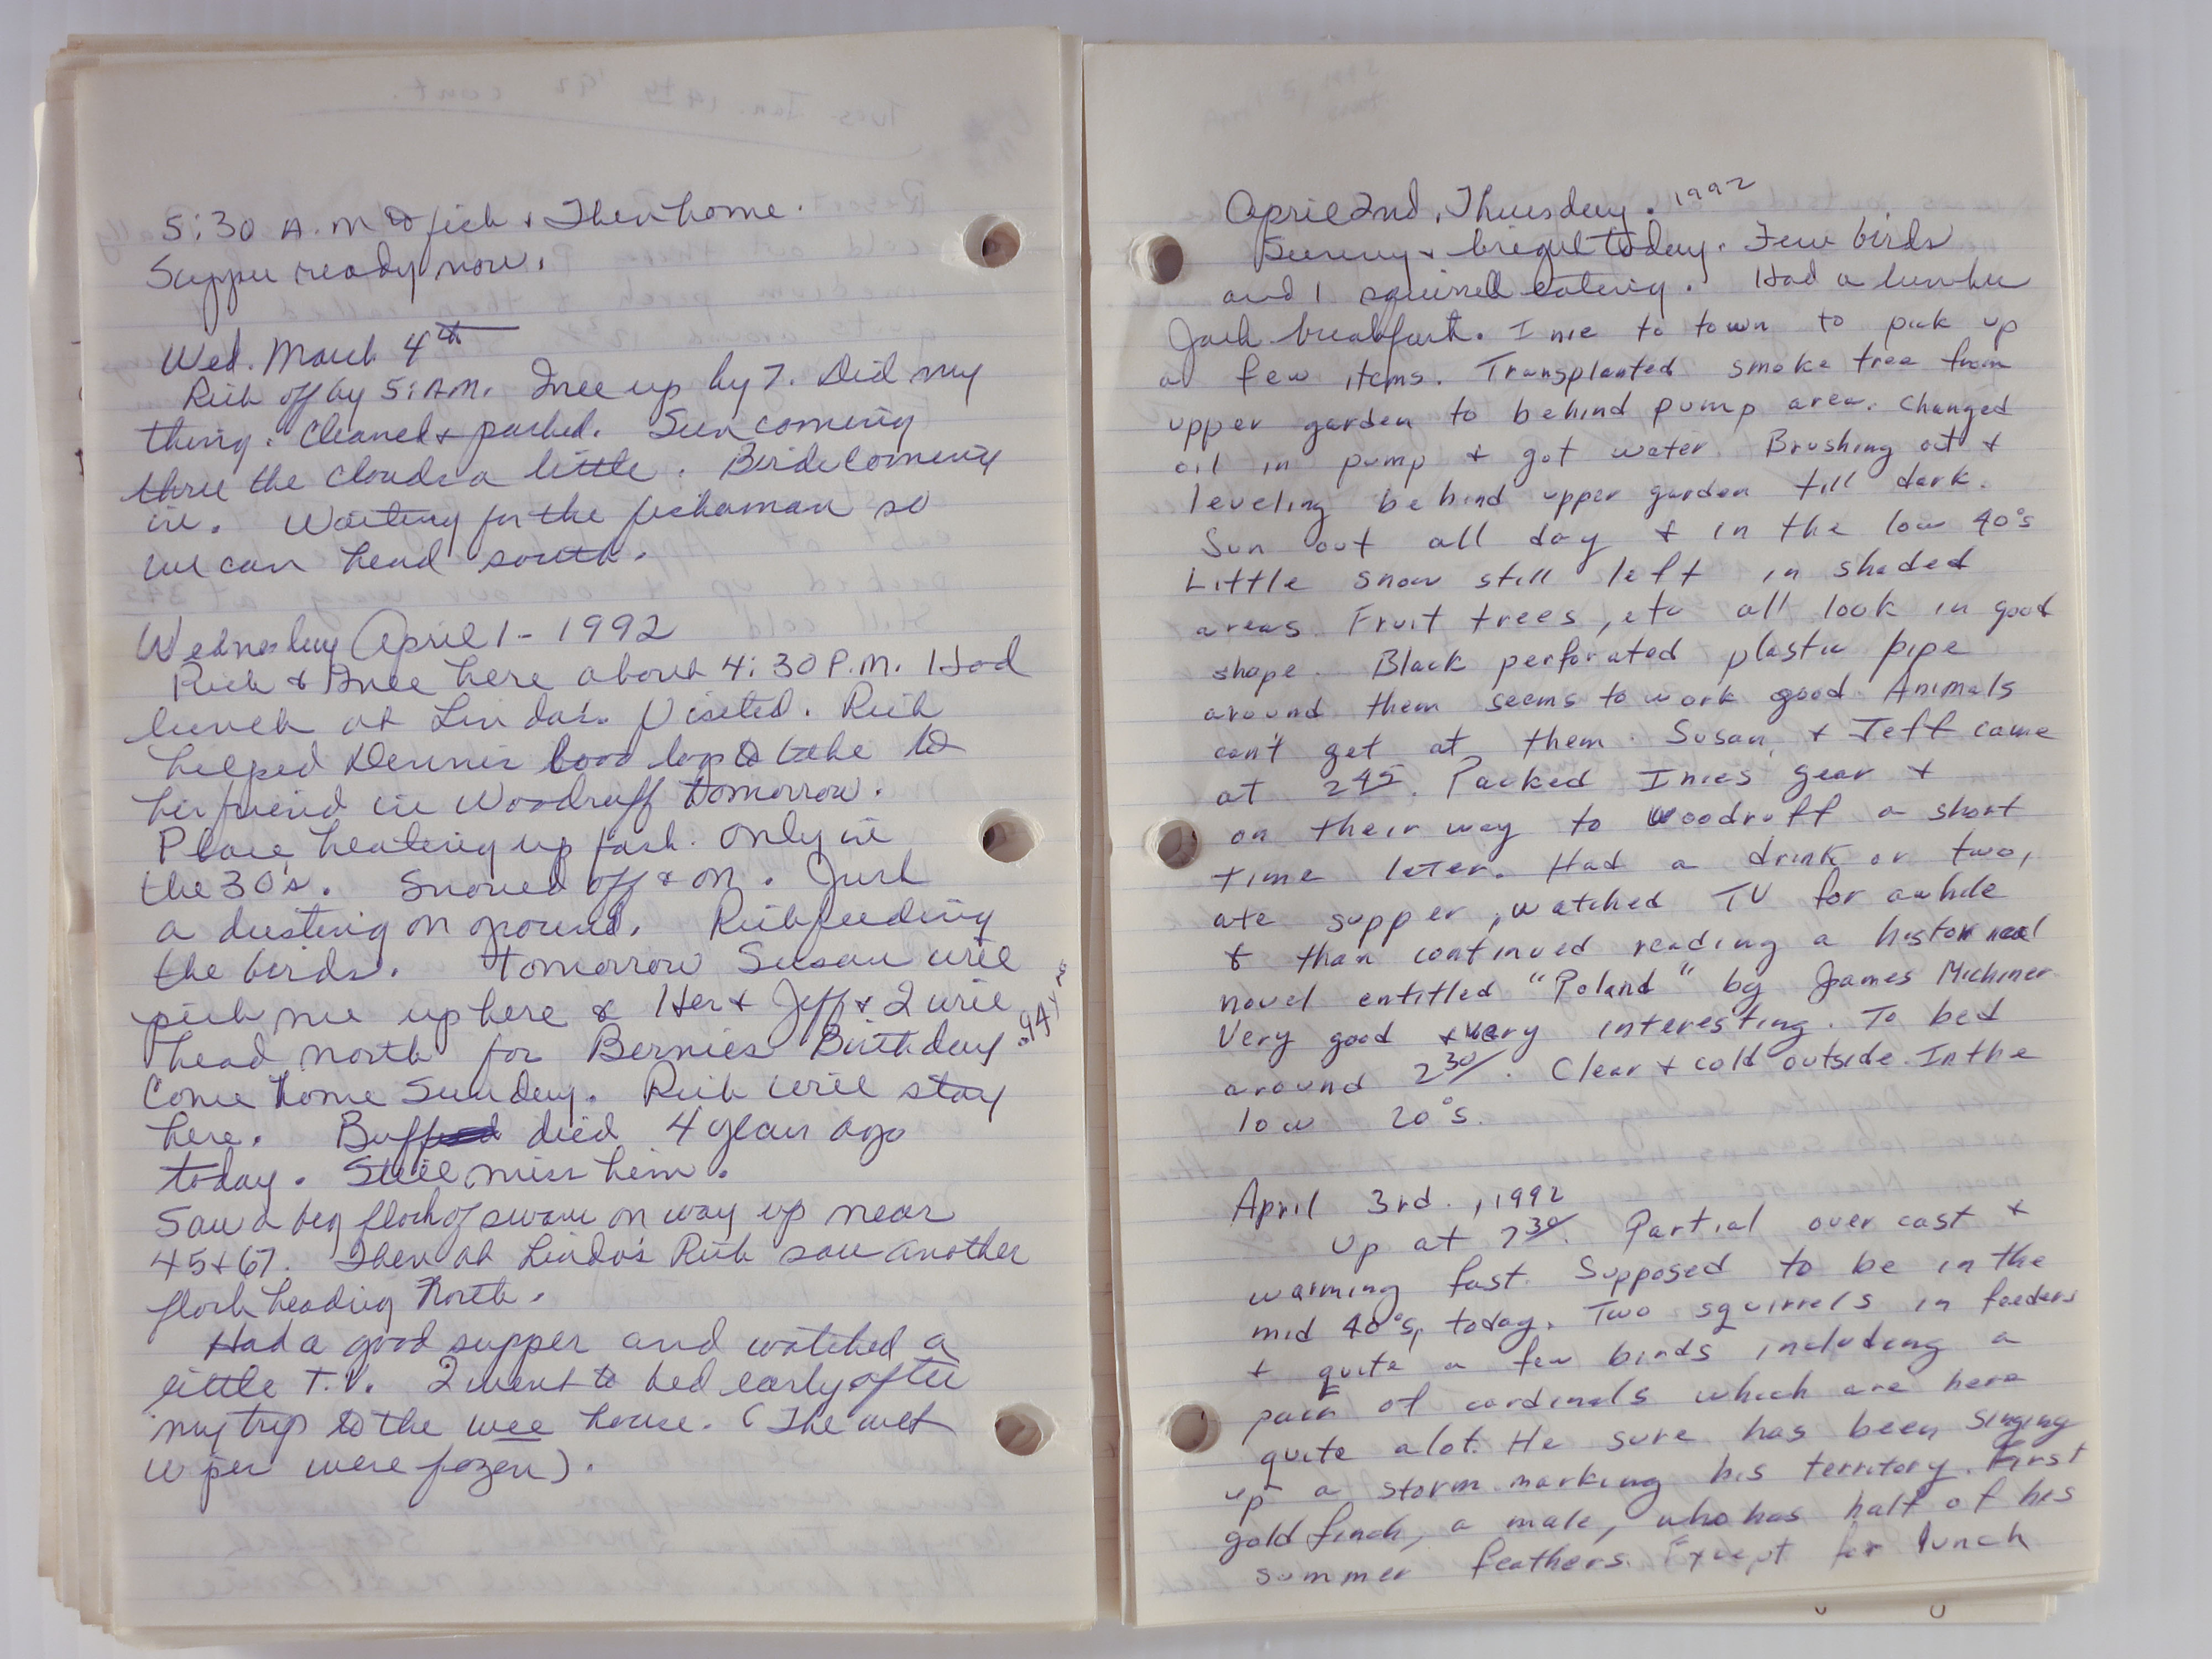 5:30 A.M to fish & Then home.
Supper ready now.
Wed. March 4th
Rich off by 5: A.M. Inee up by 7. Did my
thing. Cleaned & packed. Sun coming
thru the clouds a little. Birds coming
in. Waiting for the fishaman so
we can head south.
Wednesday April 1 - 1992
Rich & Inee here about 4:30 P.M. Had
lunch at Linda's. Visited. Rich
helped Dennis load logs to take to
his friend in Woodruff tomorrow.
Place heating up fast. Only in
the 30's. Snowed off & on. Just
a dusting on ground. Rich feeding
the birds. Tomorrow Susan will
pick me up here & Her & Jeff & I will
head north for Bernies Birthday. 94 yrs
Come home Sunday. Rich will stay
here. Buff died 4 years ago
today. Still miss him.
Saw a big flock of swans on way up near
45 & 67. Then at Linda's Rich saw another
flock heading North.
Had a good supper and watched a
little T.V. I went to bed early after
my trip to the wee house. (The wet
wipes were fozen).
April 2nd, Thursday. 1992
Sunny & bright today. Few birds
and 1 squirrell eating. Had a lumber
Jack breakfast. Inie to town to pick up
a few items. Transplanted smoke tree from
upper garden to behind pump area. Changed
oil in pump & got water. Brushing out &
leveling behind upper garden till dark.
Sun out all day & in the low 40°s
Little snow still left in shaded
areas. Fruit trees, etc all look in good
shape. Black perforated plastic pipe
around them seems to work good Animals
can't get at them. Susan & Jeff came
at 245. Packed Inies gear &
on their way to Woodruff a short
time later. Had a drink or two,
ate supper, watched TV for awhile
& than continued reading a historical
novel entitled "Poland" by James Michiner
Very good & very interesting. To bed
around 230. Clear & cold outside. In the
low 20°s.
April 3rd., 1992
Up at 730. Partial over cast &
warming fast. Supposed to be in the
mid 40°s, today. Two squirrels in feeders
& quite a few birds including a
pair of cardinals which are here
quite alot. He sure has been singing
up a storm marking his territory. First
gold finch, a male, who has half of his
summer feathers. Except for lunch